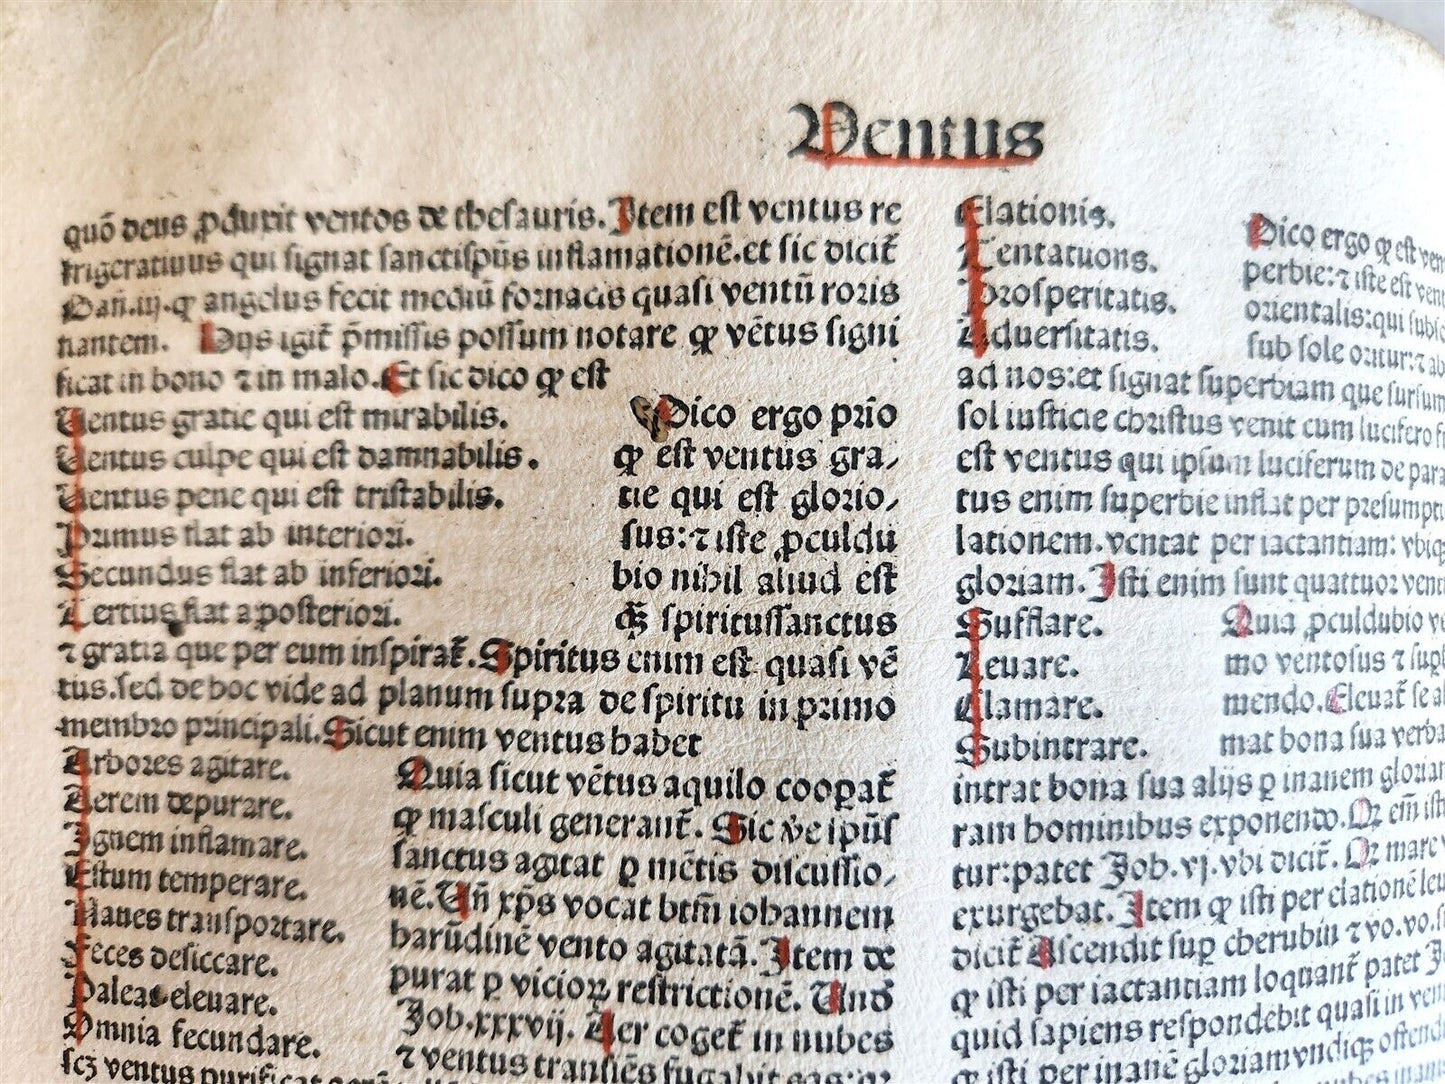 Ventus
quō deus ꝓduxit ventos de thesauris. Item est ventus re
frigeratiuus qui signat sanctispūs inflamationē. et sic dicit̄
Dañ. iij. ꝙ angelus fecit mediū fornacis quasi ventū roris
flantem. Hijs igit̄ p̄missis possum notare ꝙ vētus signi
ficat in bono ⁊ in malo. Et sic dico ꝙ est
Uentus gratie qui est mirabilis.
Uentus culpe qui est damnabilis.
Uentus pene qui est tristabilis.
Primus flat ab interiori.
Secundus flat ab inferiori.
Tertius flat a posteriori.
Dico ergo prīo
ꝙ est ventus gra/
tie qui est glorio/
sus: ⁊ iste ꝓculdu
bio nihil aliud est
spiritussanctus
⁊ gratia que per eum inspirat̄. Spiritus enim est quasi vē
tus. sed de hoc vide ad planum supra de spiritu in primo
membro principali. Sicut enim ventus habet
Arbores agitare.
Aerem depurare.
Ignem inflamare.
Estum temperare.
Naues transportare.
Feces desiccare.
Paleas eleuare.
Omnia fecundare.
Quia sicut vētus aquilo cooꝑat̄
ꝙ masculi generant̄. Sic ve ipūs
sanctus agitat ꝑ mētis discussio/
nē. Uñ xp̄s vocat btm̄ iohannem
harūdinē vento agitatā. Item de
purat ꝑ vicioꝝ restrictionē. Und̄
Job. xxxvij. Aer coget̄ in nubes
⁊ ventus transiēs fugabit eas:
scꝫ ventus purificat
Elationis.
Tentatuons.
Prosperitatis.
Aduersitatis.
Dico ergo ꝙ est ven
perbie: ⁊ iste est vent
orientalis: qui subi
sub sole oritur: ⁊ ab
ad nos: et signat superbiam que sursum
sol iusticie christus venit cum lucifero
est ventus qui ipsum luciferum de para
tus enim superbie inflat per presumpti
lationem. ventat per iactantiam: vbiq
gloriam. Isti enim sunt quattuor vent
Sufflare.
Leuare.
Clamare.
Subintrare.
Quia ꝓculdubio ve
mo ventosus ⁊ sup
mendo. Eleuat̄ se a
mat bona sua verba
intrat bona sua alijs ꝑ inanem gloriam
ram hominibus exponendo. Qꝛ em̄ isti
tur: patet Job. vj. vbi dicit̄. Qꝛ mare v
exurgebat. Item ꝙ isti per elationē leu
dicit̄ Ascendit suꝑ cherubin ⁊ vo. vo.
ꝙ isti per iactantiam loquant̄ patet
quid sapiens respondebit quasi in ven
ꝙ isti per inanē gloriam vndiqꝫ ostend